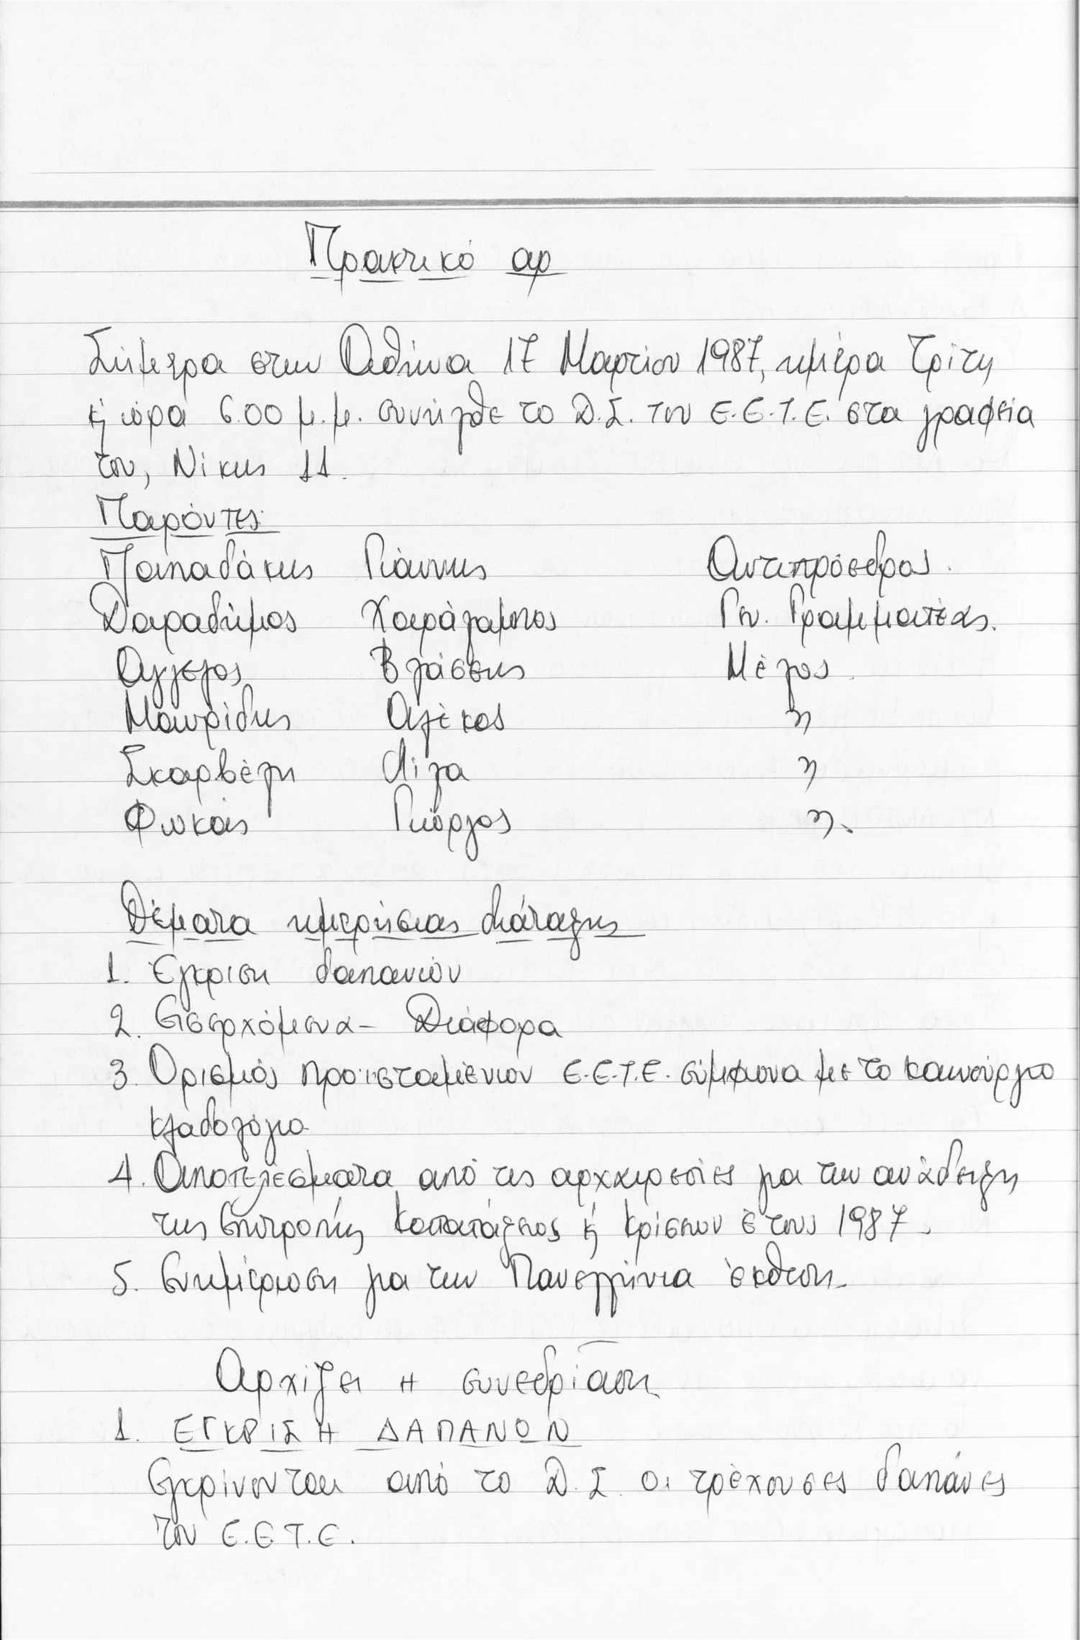 Πρακτικό αρ
Σήμερα στην Αθήνα 17 Μαρτίου 1987, ημέρα Τρίτη
κ ώρα 6.00 μ.μ. συνήλθε το Δ.Σ. του Ε.Ε.Τ.Ε. στα γραφεία
του, Νίκης 11.
Παρόντες:
Παπαδάκης Γιάννης Αντιπρόεδρος.
Δαραδήμος Χαράλαμπος Γεν. Γραμματέας.
Αγγελος Βλάσσης Μέλος.
Μαυρίδης Αλέκος "
Σκαρβέλη Λίλα "
Φωκάς Γιώργος ".
Θέματα ημερήσιας διάταξης
1. Έγκριση δαπανών
2. Εισερχόμενα - Διάφορα
3. Ορισμός προισταμένων Ε.Ε.Τ.Ε. σύμφωνα με το καινούργιο
κλαδολόγιο
4. Αποτελέσματα από τις αρχαιρεσίες για την ανάδειξη
της Επιτροπής Κατατάξεως κ Κρίσεων έτους 1987.
5. Ενημέρωση για την Πανελλήνια έκθεση.
Αρχίζει η συνεδρίαση
1. ΕΓΚΡΙΣΗ ΔΑΠΑΝΩΝ
Εγκρίνονται από το Δ.Σ. οι τρέχουσες δαπάνες
του Ε.Ε.Τ.Ε.